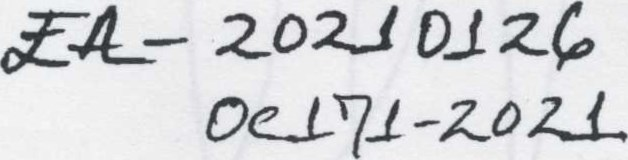 EA-20210126
Oc171-2021